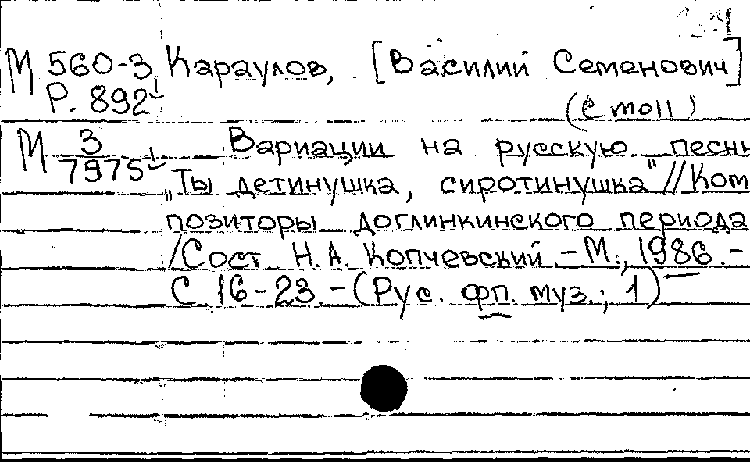 М 560-3 Караулов, [Василий Семенович]
Р. 892
(c moll)
М 3/7975 Вариации на русскую песнь
„Ты детинушка, сиротинушка" // Ком
позиторы доглинкинского периода
/Сост Н.А. Копчевский. – М., 1986. –
С 16-23. – (Рус. фп. муз.; 1)